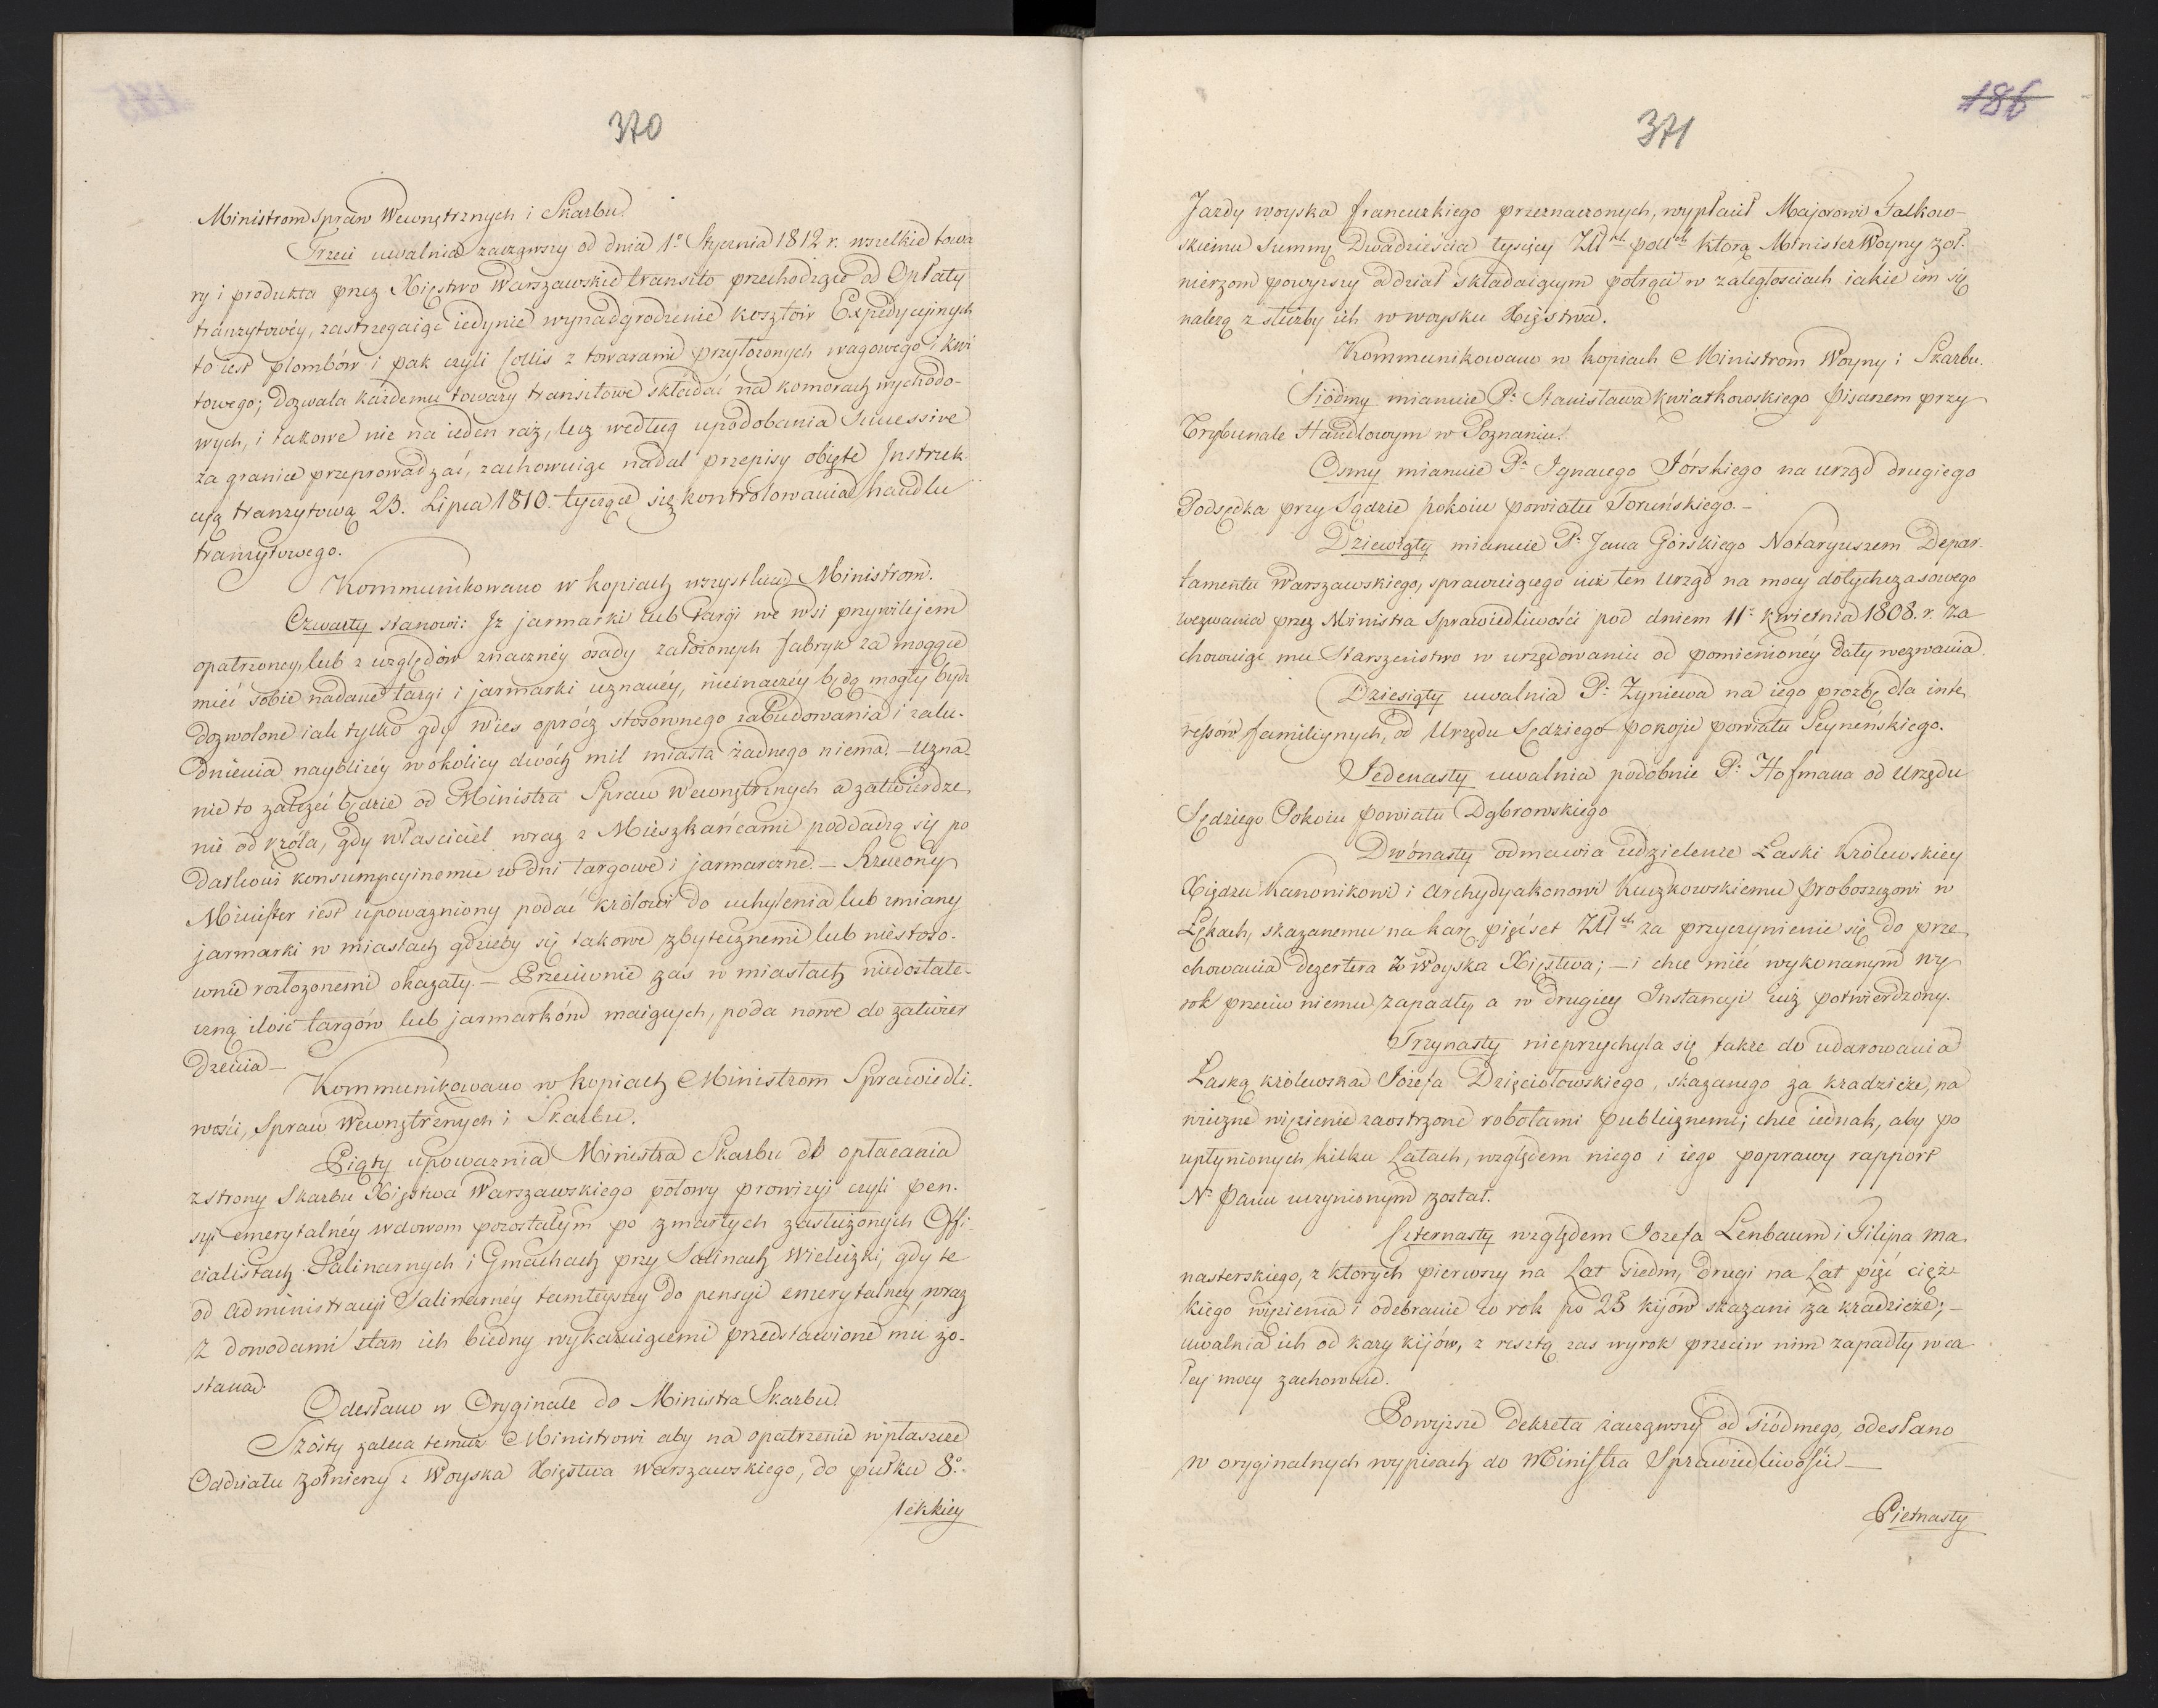 370
Ministrom Spraw Wewnętrznych i Skarbu.
Trzeci uwalnia zacząwszy od dnia 1º Stycznia 1812 r. wszelkie towa
ry i produkta przez Xięstwo Warszawskie transito przechodzące od Opłaty
tranzytowéy, zastrzegaiąc iedynie wynadgrodzenie kosztów Expedycyinych
to iest plombów i pak czyli Collis z towarami przyłożonych wagowego i kwi
towego; dozwala każdemu towary transitowe składać na komorach wychodo-
wych, i takowe nie na ieden raz, lecz według upodobania Successive
za granice przeprowadzać, zachowuiąc nadal przepisy obięte Instruk
cyą tranzytową 23. Lipca 1810. tyczące się kontrolowania handlu
tranzytowego.
Kommunikowano w kopiach wszystkim Ministrom.
Czwarty stanowi: Iż jarmarki lub targi we wsi przywilejem
opatrzoney, lub z względów znacznéy osady założonych fabryk za mogące
mieć sobie nadane targi i jarmarki uznanéy, nieinaczéy będą mogły bydz
dozwolone iak tylko gdy wies oprócz stosownego zabudowania i zalu-
dnienia nayblizéy w okolicy dwóch mil miasta żadnego niema. – Uzna
nie to zależeć będzie od Ministra Spraw Wewnętrznych a zatwierdze
nie od króla, gdy własciciel wraz z Mieszkańcami poddadzą się po
datkowi konsumpcyinemu w dni targowe i jarmarczne. – Rzeczony
Minister iest upoważniony podać królowi do uchylenia lub zmiany
jarmarki w miastach gdzieby się takowe zbytecznemi lub niestoso-
wnie rozłożonemi okazały. – Przeciwnie zas w miastach niedostate-
czną ilość targów lub jarmarków maiących, poda nowe do zatwier
dzenia –
Kommunikowano w kopiach Ministrom Sprawiedli-
wości, Spraw Wewnętrznych i Skarbu.
Piąty upowaznia Ministra Skarbu do opłacania
z strony Skarbu Xięstwa Warszawskiego połowy prowizyi czyli pen-
syi emerytalnéy wdowom pozostałym po zmarłych zasłużonych Offi-
cialistach Salinarnych i Gmachach przy Salinach Wieliczki, gdy te
od Administracyi Salinarney tamteyszey do pensyi emerytalney wraz
z dowodami stan ich biedny wykazuiącemi przedstawione mu zo-
staną.
Odesłano w Oryginale do Ministra Skarbu.
Szósty zaleca temuż Ministrowi aby na opatrzenie w płaszcze
Oddziału żołnierzy z Woyska Xięstwa Warszawskiego, do pułku 8º
lekkiey
186
371
Jazdy woyska francuzkiego przeznaczonych, wypłacił Majorowi Falkow-
skiemu Summę Dwadzieścia tysięcy Złł. pol. którą Minister Woyny żoł-
nierzom powyzszy oddział składaiącym potrąci w zaległosciach iakie im się
nalezą z służby ich w woysku Xięstwa.
Kommunikowano w kopiach Ministrom Woyny i Skarbu.
Siódmy mianuie P. Stanisława Kwiatkowskiego Pisarzem przy
Trybunale Handlowym w Poznaniu.
Osmy mianuie P. Ignacego Jórskiego na urząd drugiego
Podsędka przy Sądzie pokoiu powiatu Toruńskiego. –
Dziewiąty mianuie P. Jana Górskiego Notaryuszem Depar-
tamentu Warszawskiego, sprawuiącego iuż ten Urząd na mocy dotychczasowego
wezwania przez Ministra Sprawiedliwości pod dniem 11. kwietnia 1808. r. za
chowuiąc mu Starszeństwo w urzędowaniu od pomienionéy daty wezwania.
Dziesiąty uwalnia P. Zyniewa na iego prozbę dla inte
ressów familiynych, od Urzędu Sędziego pokoju powiatu Seyneńskiego.
Jedenasty uwalnia podobnie P. Hofmana od Urzędu
Sędziego Pokoiu powiatu Dąbrowskiego
Dwónasty odmawia udzielenie Łaski Królewskiey
Xiędzu Kanonikowi i Archydyakonowi Kuczkowskiemu Proboszczowi w
Łękach, skazanemu na karę pięćset Złł. za przyczynienie się do prze
chowania Dezertera z Woyska Xięstwa; – i chce mieć wykonanym wy
rok przeciw niemu zapadły, a w drugiey Instancyi iuż potwierdzony.
Trzynasty nieprzychyla się także do udarowania
Łaską królewską Józefa Dzięciołowskiego, skazanego za kradzieże, na
wieczne więzienie zaostrzone robotami publicznemi; chce iednak, aby po
upłynionych kilku Latach, względem niego i iego poprawy rapport
N. Panu uczynionym został.
Czternasty względem Jozefa Lenbaum i Filipa Ma
nasterskiego, z ktorych pierwszy na Lat siedm, drugi na Lat pięć cięż-
kiego więzienia i odebranie co rok po 25 kijów skazani za kradzieże; –
uwalnia ich od kary kijów, z resztą zas wyrok przeciw nim zapadły w ca
łey mocy zachowuie.
Powyzsze Dekreta zacząwszy od siódmego, odesłano
w oryginalnych wypisach do Ministra Sprawiedliwości –
Pietnasty